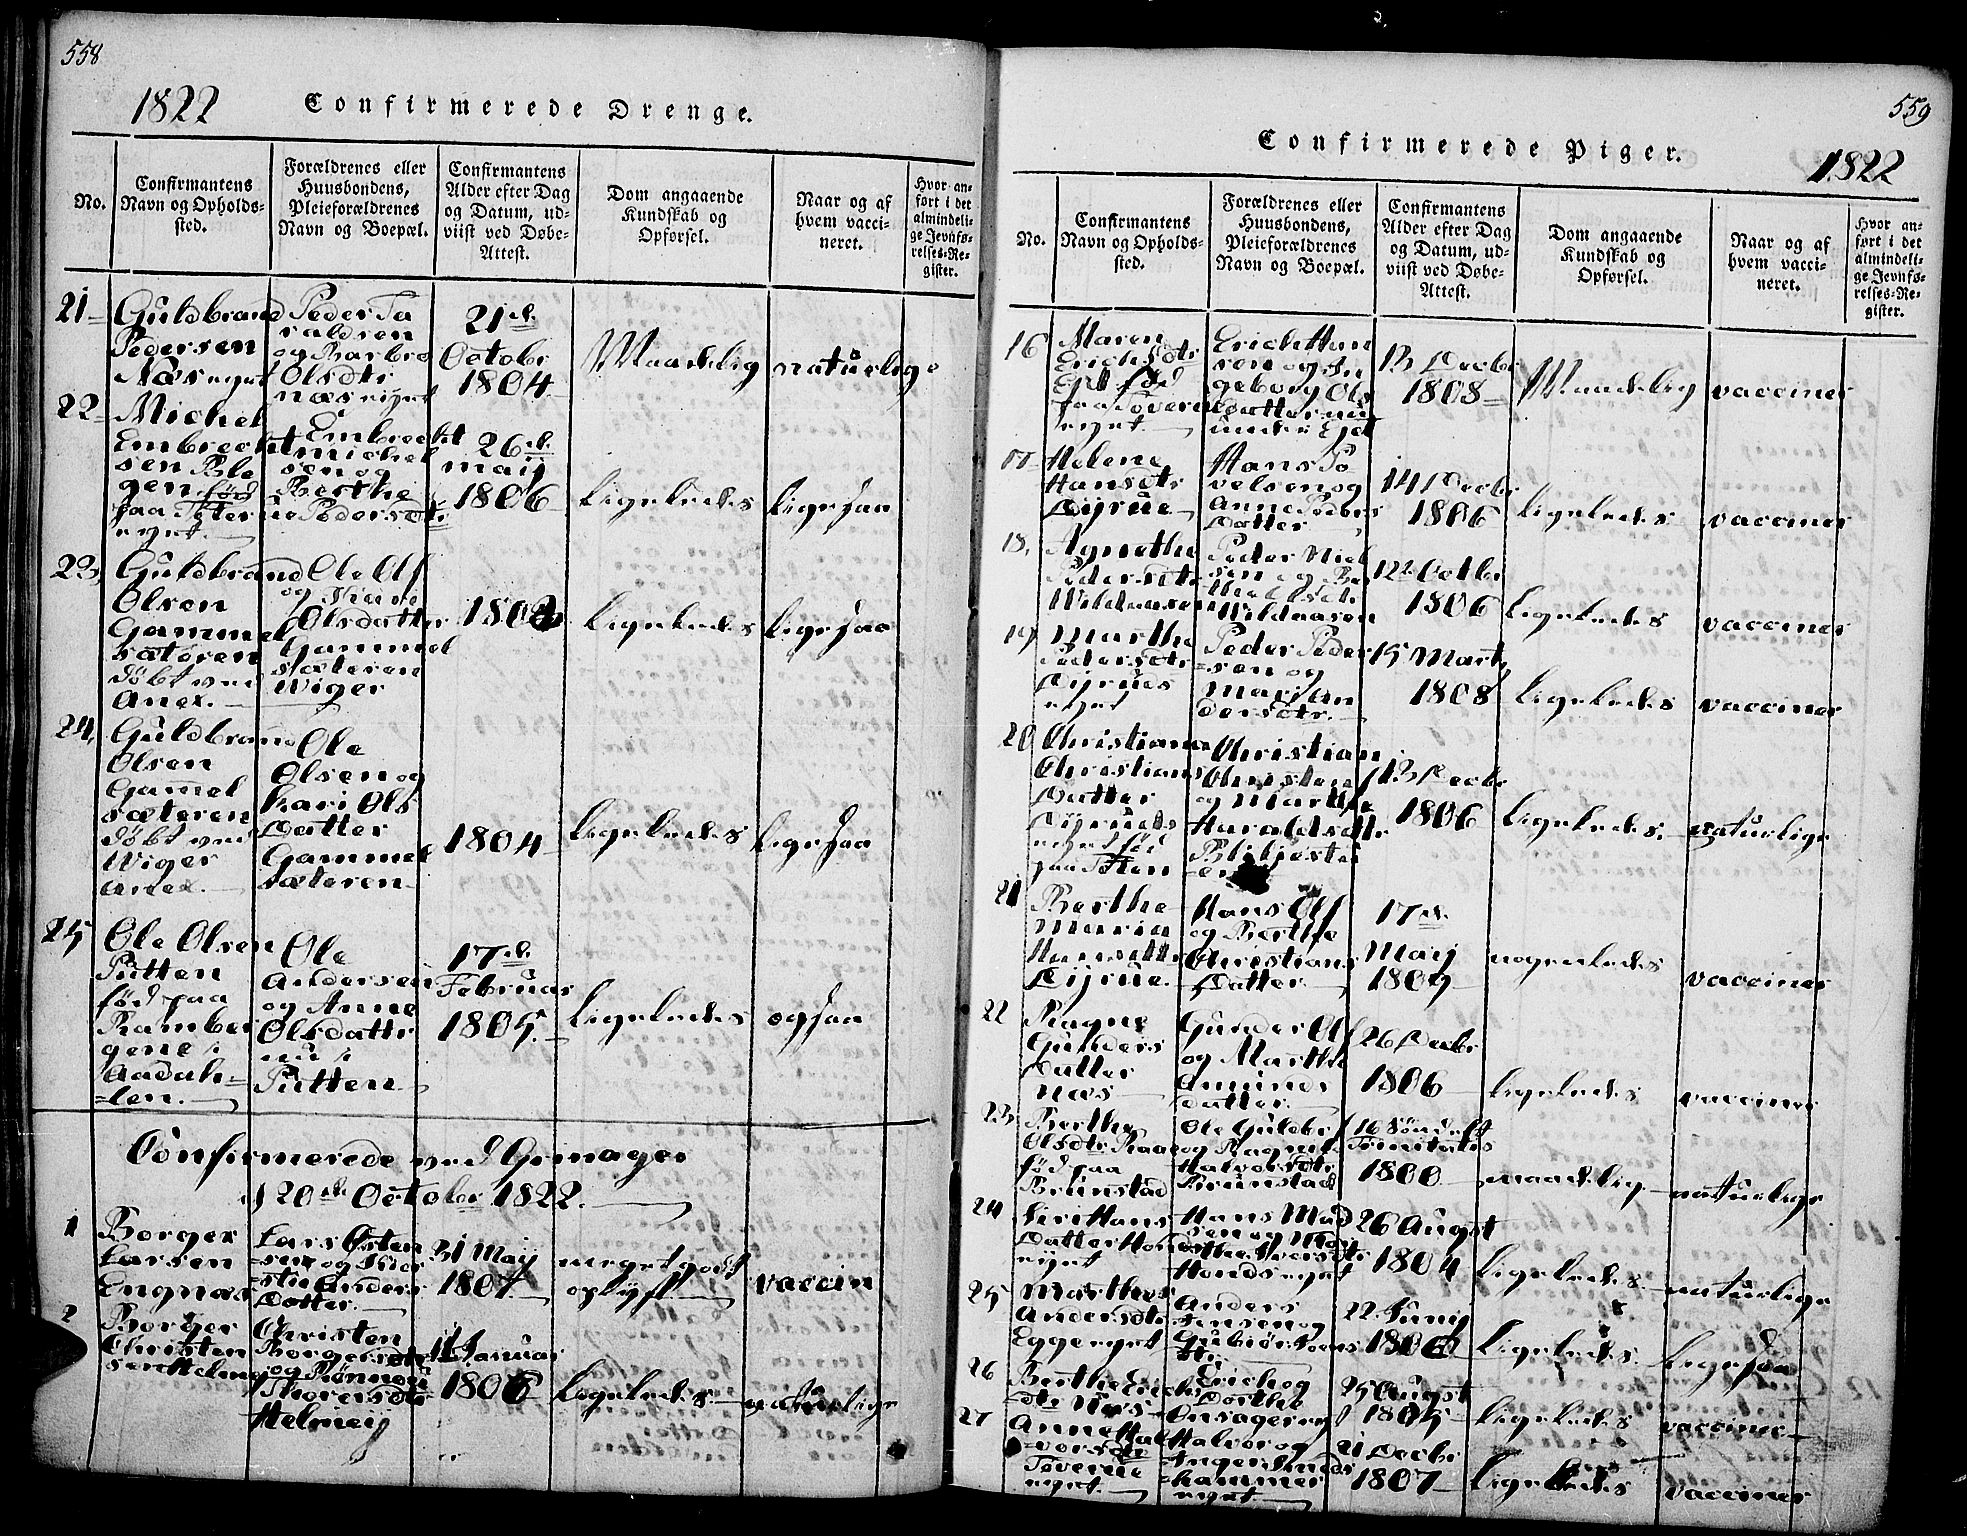 558
1822 Confirmerede Drenge.
No.
Confirmantens
Navn og Opholds-
sted.
Forældrenes eller
Huusbondens,
Pleieforældrenes
Navn og Boepæl.
Confirmantens
Alder efter Dag
og Datum, ud-
viist ved Døbe-
Attest.
Dom angaaende
Kundskab og
Opførsel.
Naar og af
hvem vacci-
neret.
Hvor an-
ført i det
almindeli-
ge Jevnfø-
relses-Re-
gister.
21
Guldbrand
Pedersen
Næs eyet
Peder Ta
raldsen
og Barbro
Olsdtr
næs eyet
21de
Octobr
1804
Maadelig
naturlige
22
Michel
Embrecht
sen Ble
gen fød
paa
eyet.
Embrecht
michel
sen og
Berthe
Pedersdtr
26de
maij
1806
Ligeledes
ligesaa
23,
Guldbrand
Olsen
Gammel
sæteren
døbt ved
Anex.
Ole Ols
og
Olsdatter
Gammel
sæteren
Wiger
Ligeledes
ligesaa
24,
Guldbrand
Olsen
Gamel
sæteren
døbt ved
Wiger
anex.
Ole
Olsen og
Kari Ols
Datter
Gammel
sæteren
1804
Ligeledes
ligesaa
25
Ole Olsen
Putten
fød paa
Ramber
gene i
Aadah-
len.
Ole
Andersen
og Anne
Olsdattr
nu i
Putten
17de
Februar
1805.
Ligeledes
ogsaa
Confirmerede ved Grinager
d 20de October 1822.
1
Borger
Larsen
Engnæs
Lars Østen
sen og
Anders
Datter.
31 Maij
1807
meget godt
oplyst
vaccin
2
Borger
Christen
sen Helmey
Christen
Borgersen
og Rønnou
Thoresdtr
Helmeij
Januar
1806
Ligeledes
naturlige
559
Confirmerede Piger. 1822
No.
Confirmantens
Navn og Opholds-
sted.
Forældrenes eller
Huusbondens,
Pleieforældrenes
Navn og Boepæl.
Confirmantens
Alder efter Dag
og Datum, ud-
viist ved Døbe-
Attest.
Dom angaaende
Kundskab og
Opførsel.
Naar og af
hvem vacci-
neret.
Hvor an-
ført i det
almindeli-
ge Jevnfø-
relses-Re-
gister.
16
Maren
Erichsdtr
fød
paa Töverud
eyet
Erich Han
sen og In
geborg Ols
Datter nu
13 Decbr
1808
Maadelig
vacciner
17
Helene
Hansdtr
Dijrue
Hans To
velsen og
Anne Peders
Datter
14 Decbr
1806
Ligeledes
vacciner
18,
Agnethe
Pedersdtr
Wildaasen
Peder Niel
sen og Be
Wildaasen
12 Octbr
1806
Ligeledes
vacciner
19
Marthe
Pedersdtr
Dijruds
eyet
Peder Peder
sen og
Mari An
dersdtr.
15 Marty
1808
Ligeledes
vacciner
20
Christiane
Christians
Datter
Dijruds
eyet fød
paa Toten
Christian
Christens
og Marthe
Haraldsdtr
13 Decbr
1806
Ligeledes.
naturlige
21
Berthe
Maria
Hansdtr
Dijrue.
Hans Ols
og Berthe
Christians
Datter
17de
Maij
1809
nogenledes
vacciner
22
Ragne
Gunders
Datter
Næs
Gunder Ols
og Marthe
Amunds
datter
26 Decbr
1806
Ligeledes
vacciner
23
Berthe
Olsdtr Raae
fød paa
Brunstad
Ole Guldbr
og Ragnil
Halvorsdtr
Brunstad
16 Sönd
Trinitatis
1800
maadelig
naturlige
24
Siri Hans
Datter Honds
eyet
Hans Mad
sen og
Honds eyet
26 Augst
1804
Ligeledes
naturlige
25
Marthe
Andersdtr
Egge eyet
Anders
Jensen og
Gubiør
22 Junij
1806
Ligeledes
Ligesaa
26
Berthe Erichs
dtr Næs
Erich og
Dorthe
Onsager eye
25 Augst
1805
Ligeledes
vacciner
27
Anne Hal
vorsdtr
Töverud
eyet
Halvor og
Inger
eyet
21 Decbr
1807
Ligeledes
vacciner